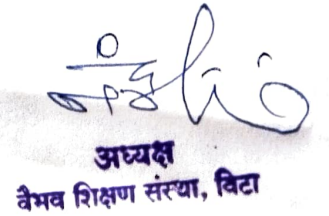 अध्यक्ष
वैभव शिक्षण संस्था, विटा